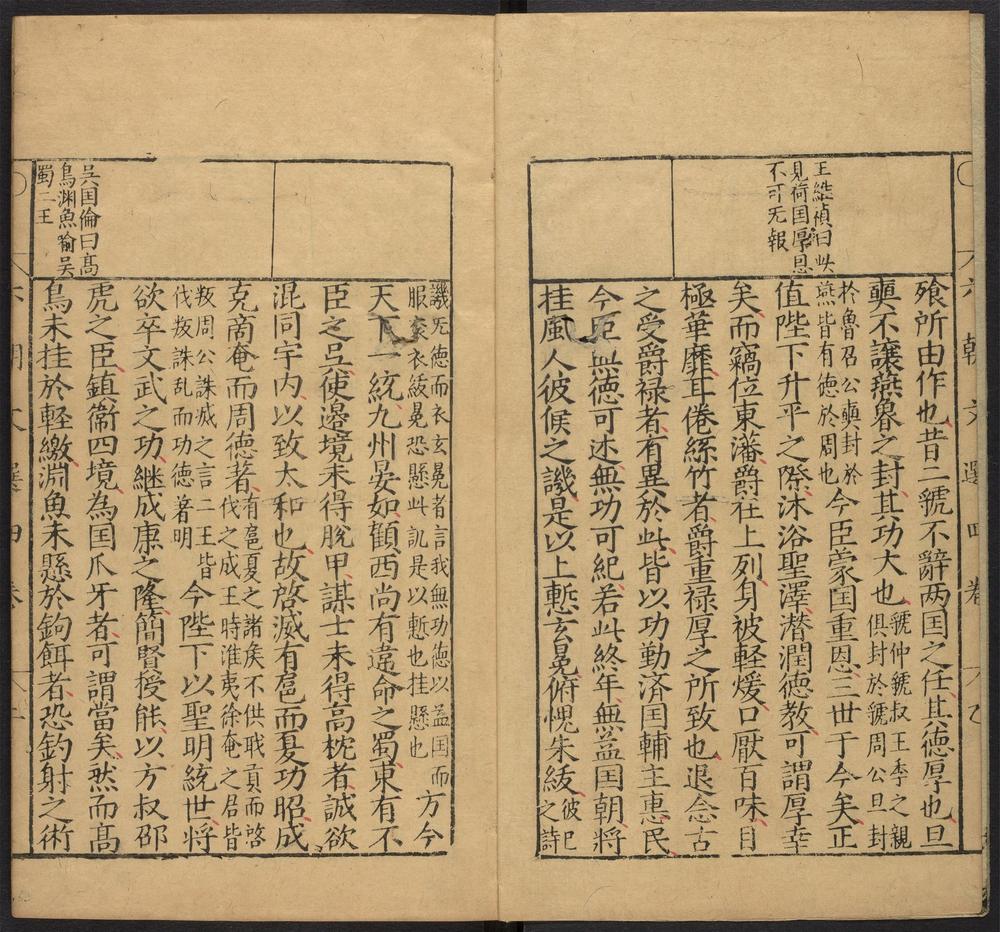 王維禎曰此
見荷囯厚恩
不可无報
飱所由作也昔二虢不辭两囯之任其德厚也旦
奭不讓燕魯之封其功大也虢仲虢叔王季之親
俱封於虢周公旦封
於魯召公奭封於
燕皆有德於周也今臣蒙囯重恩三世于今矣正
值陛下升平之際沐浴聖澤潜潤德教可謂厚幸
矣而竊位東藩爵在上列身被軽煖口厭百味目
極華靡耳倦絲竹者爵重禄厚之所致也退念古
之受爵禄者有異於此皆以功勤済囯輔主惠民
今臣無德可述無功可紀若此終年無益囯朝將
挂風人彼候之譏是以上慙玄冕俯愧朱紱彼己
之詩
譏无德而衣玄冕者言我無功德以益囯而
服衮衣紱冕恐懸此訊是以慙也挂懸也方今
天下一統九州晏如顧西尚有違命之蜀東有不
臣之吳使邉境未得脫甲謀士未得高枕者誠欲
混同宇内以致太和也故啓滅有扈而夏功昭成
克商奄而周德著有扈夏之諸侯不供職貢而啓
伐之成王時淮夷徐奄之君皆
叛周公誅滅之言二王皆
伐叛誅乱而功德著明今陛下以聖明統世將
欲卒文武之功継成康之隆簡賢授能以方叔邵
虎之臣鎮衞四境為囯爪牙者可謂當矣然而髙
鳥未挂於軽繳淵魚未懸於鉤餌者恐釣射之術
吴囯倫曰髙
鳥渊魚喻吴
蜀二王